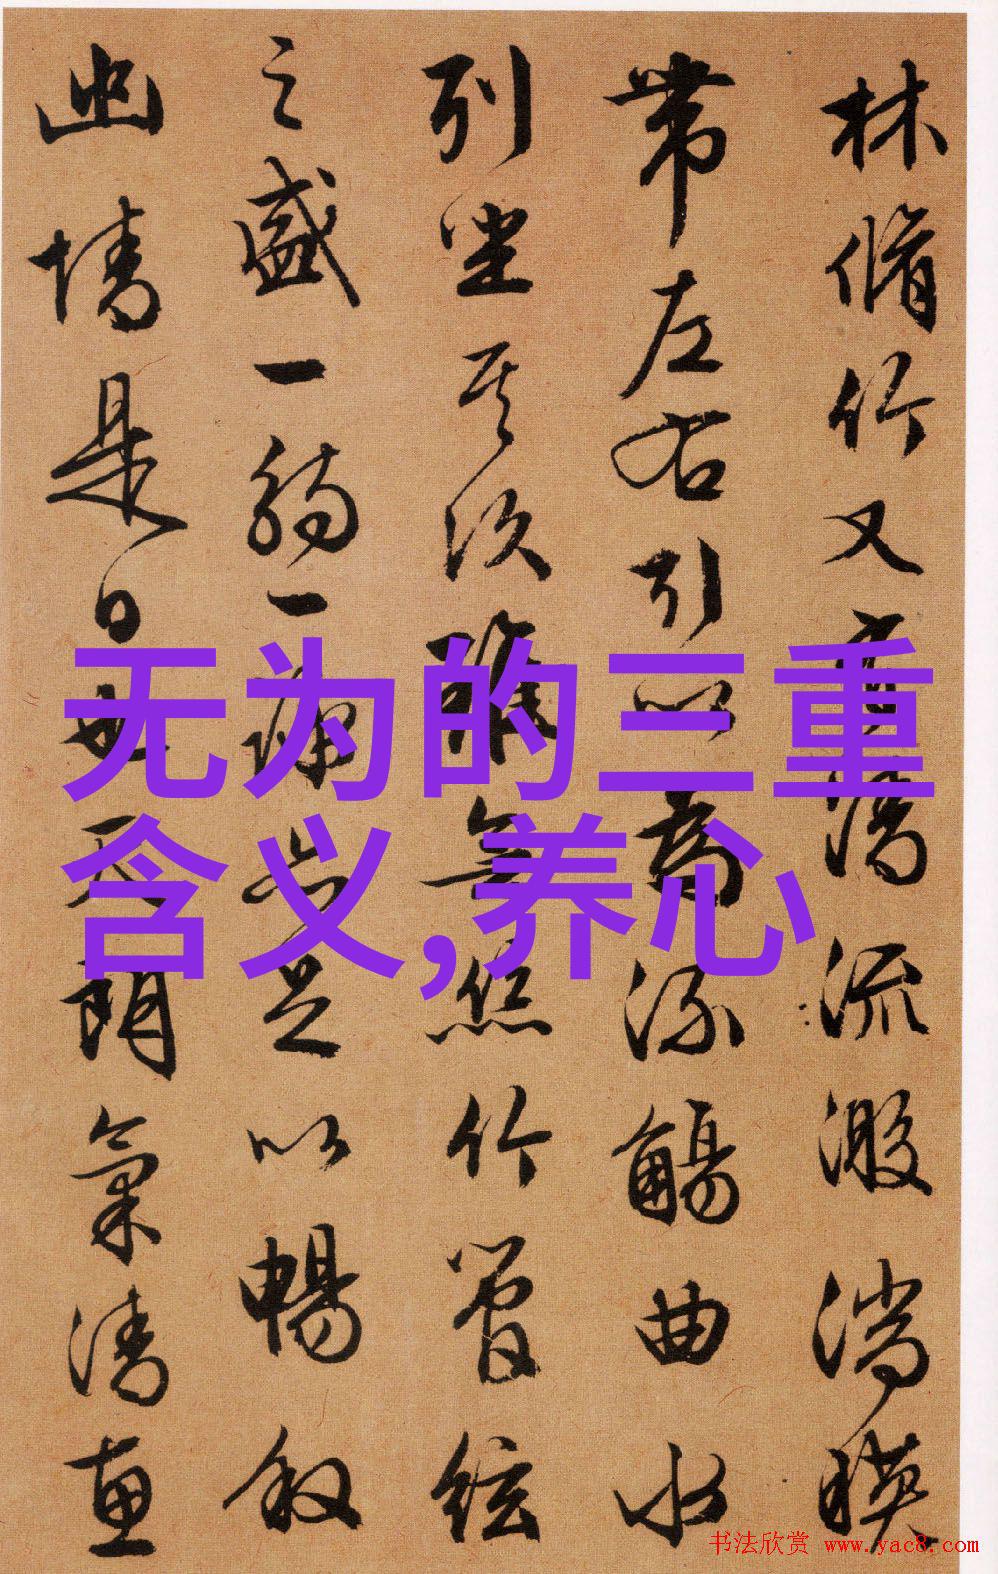 林脩竹又有清流激湍映
帶左右引以為流觴曲水
列坐其次雖無絲竹管絃
之盛一觴一詠亦足以暢叙
幽情是日也天朗氣清惠
无为的三重
含义,养心
书法欣赏 www.yac8.com